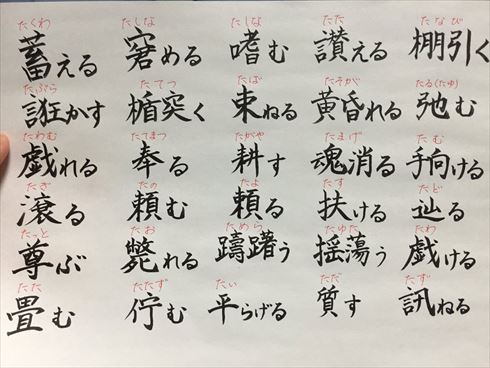 たくわ たしな たしな たた たなび
蓄える 窘める 嗜む 讃える 棚引く
たぶら たてつ たば たそがれ たる(たゆ)
誑かす 楯突く 束ねる 黄昏れる 弛む
たわむ たてまつ たがや たまげ たむ
戯れる 奉る 耕す 魂消る 手向ける
たぎ たの たよ たす たど
滾る 頼む 頼る 扶ける 辿る
たっと たお ためら たゆた たわ
尊ぶ 斃れる 躊躇う 揺蕩う 戯ける
たた たたず たい ただ たず
畳む 佇む 平らげる 質す 訊ねる